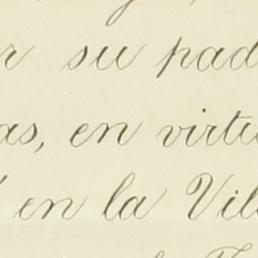 r su pad
as, en virtu
en la Vil